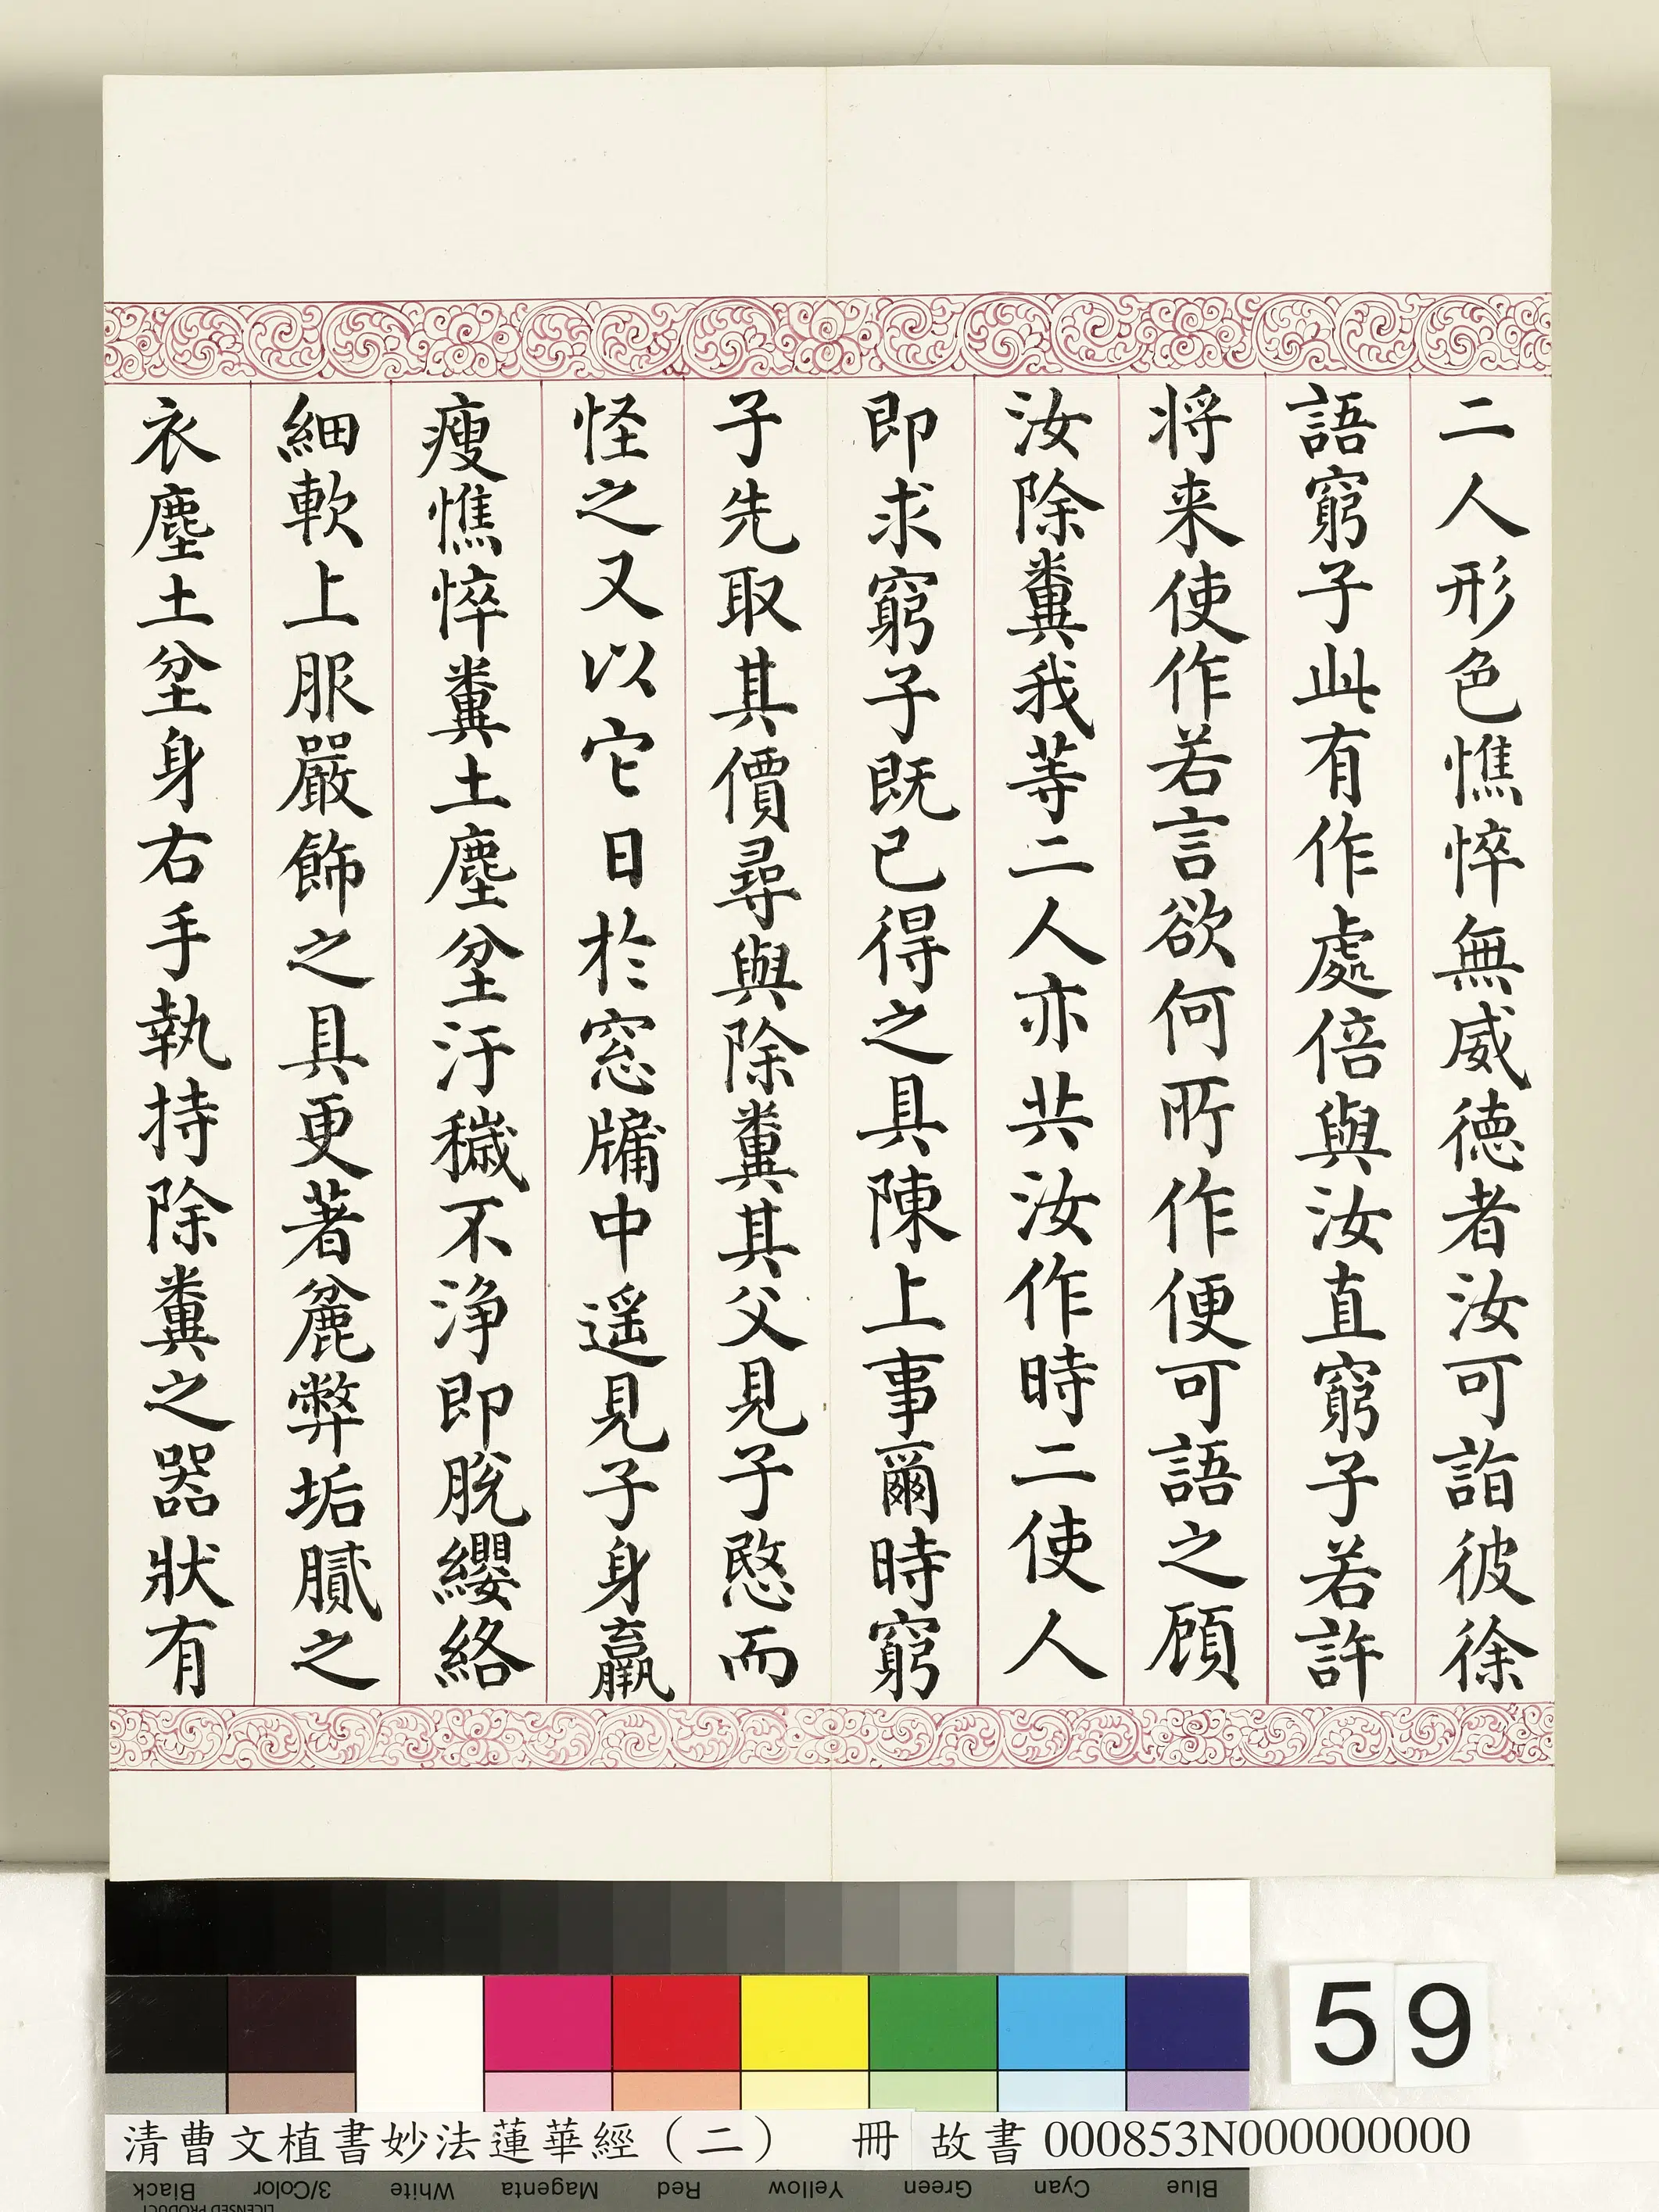 二人形色憔悴無威德者汝可詣彼徐
語窮子此有作處倍與汝直窮子若許
将来使作若言欲何所作便可語之顧
汝除糞我等二人亦共汝作時二使人
即求窮子既已得之具陳上事爾時窮
子先取其價尋與除糞其父見子愍而
怪之又以它日於窓牖中遥見子身羸
瘦憔悴糞土塵坌汙穢不淨即脫纓絡
細軟上服嚴飾之具更著麁弊垢膩之
衣塵土坌身右手執持除糞之器狀有
59
清曹文植書妙法蓮華經（二） 冊 故書 000853N000000000
Black 3/Color White Magenta Red Yellow Green Cyan Blue
LICENSED PRODUCT